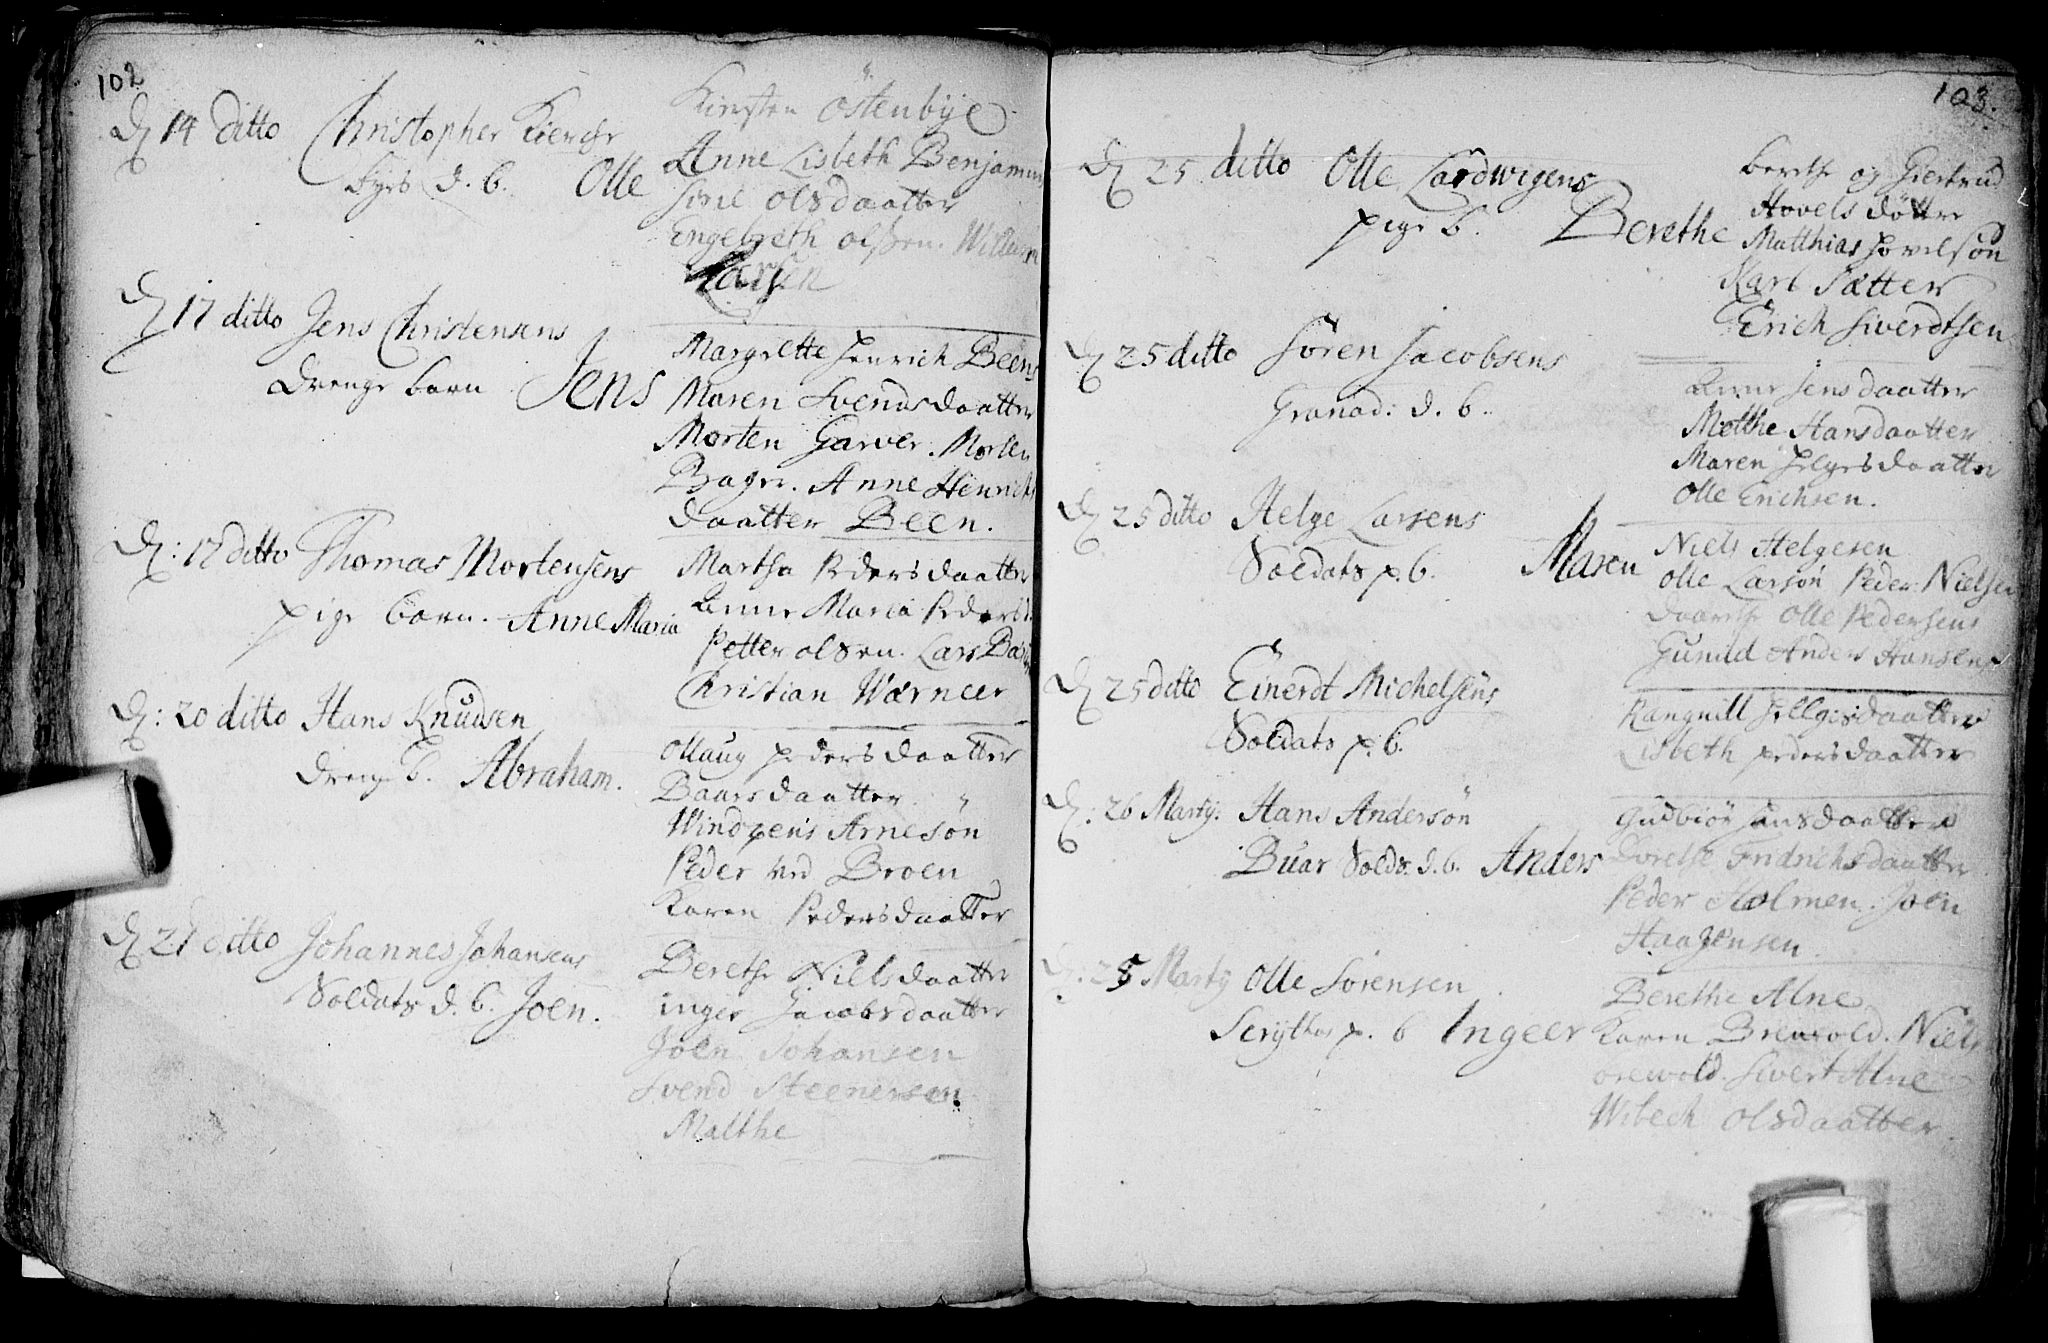 102
D 14 ditto Christopher Kierche
byes d. b. Olle
Kirsten Östenbÿe
Anne Lisbeth Benjamins
Sine olsdaatter
Engebreth olssen. Willum
Larsen
D 17 ditto Jens Christensens
drenge barn Jens
Margrette Henrich Beens
Maren Svendsdaatter
Morten Garver. Morten
Bager. Anne Henrichs
daatter Been.
D: 17 ditto Thomas Mortensens
pige barn. Anne Maria
Martha Pedersdaatter
Anne Maria Peders
Petter olsen. Lars
Christian Wærneer
D: 20 ditto Hans Knudsen
dreng b. Abraham.
Ollaug pedersdaatter
Baarsdaatter. "
Arnesön
Peder ved Broen
Karen Pedersdaatter
D 21 ditto Johannes Johansens
Soldats d. b. Joen.
Berethe Nielsdaatter
inger Jacobsdaatter
Joen Johansen
Svend Steenersen.
Malthe
103.
D 25 ditto Olle Lardwigens
pige b. Berethe
berthe og Giertrud
Hovels döttre
Matthias Hovelsön
Karl Sætter
Erich Siverdtsen
D 25 ditto Sören Jacobsens
Granad: d. b.
Anne Jensdaatter
Melthe Hansdaatter
Maren Helgesdaatter
Olle Erichsen.
D 25 ditto Helge Larsens
Soldats p. b. Maren
Niels Helgesen
Olle Larsön Peder Nielsen
Olle Pedersens
Gunild Anders Hansens
D 25 ditto Einerdt Michelsens
Soldats p. b.
Rangnill Hellgesdaatter
Lisbeth pedersdaatter
D: 26 Martÿ: Hans Andersön
Buar Solds: d. b. Anders
Gudbiör Hansdaatter
Dorethe Fridrichsdaatter
Peder Holmen. Joen
Haagensen.
D: 28 Martÿ Olle Sörensen
p. b Ingeer
Berethe Alne
Karen Brewold. Niels
Brewold. Sivert Alne
Wibech Olsdaatter.